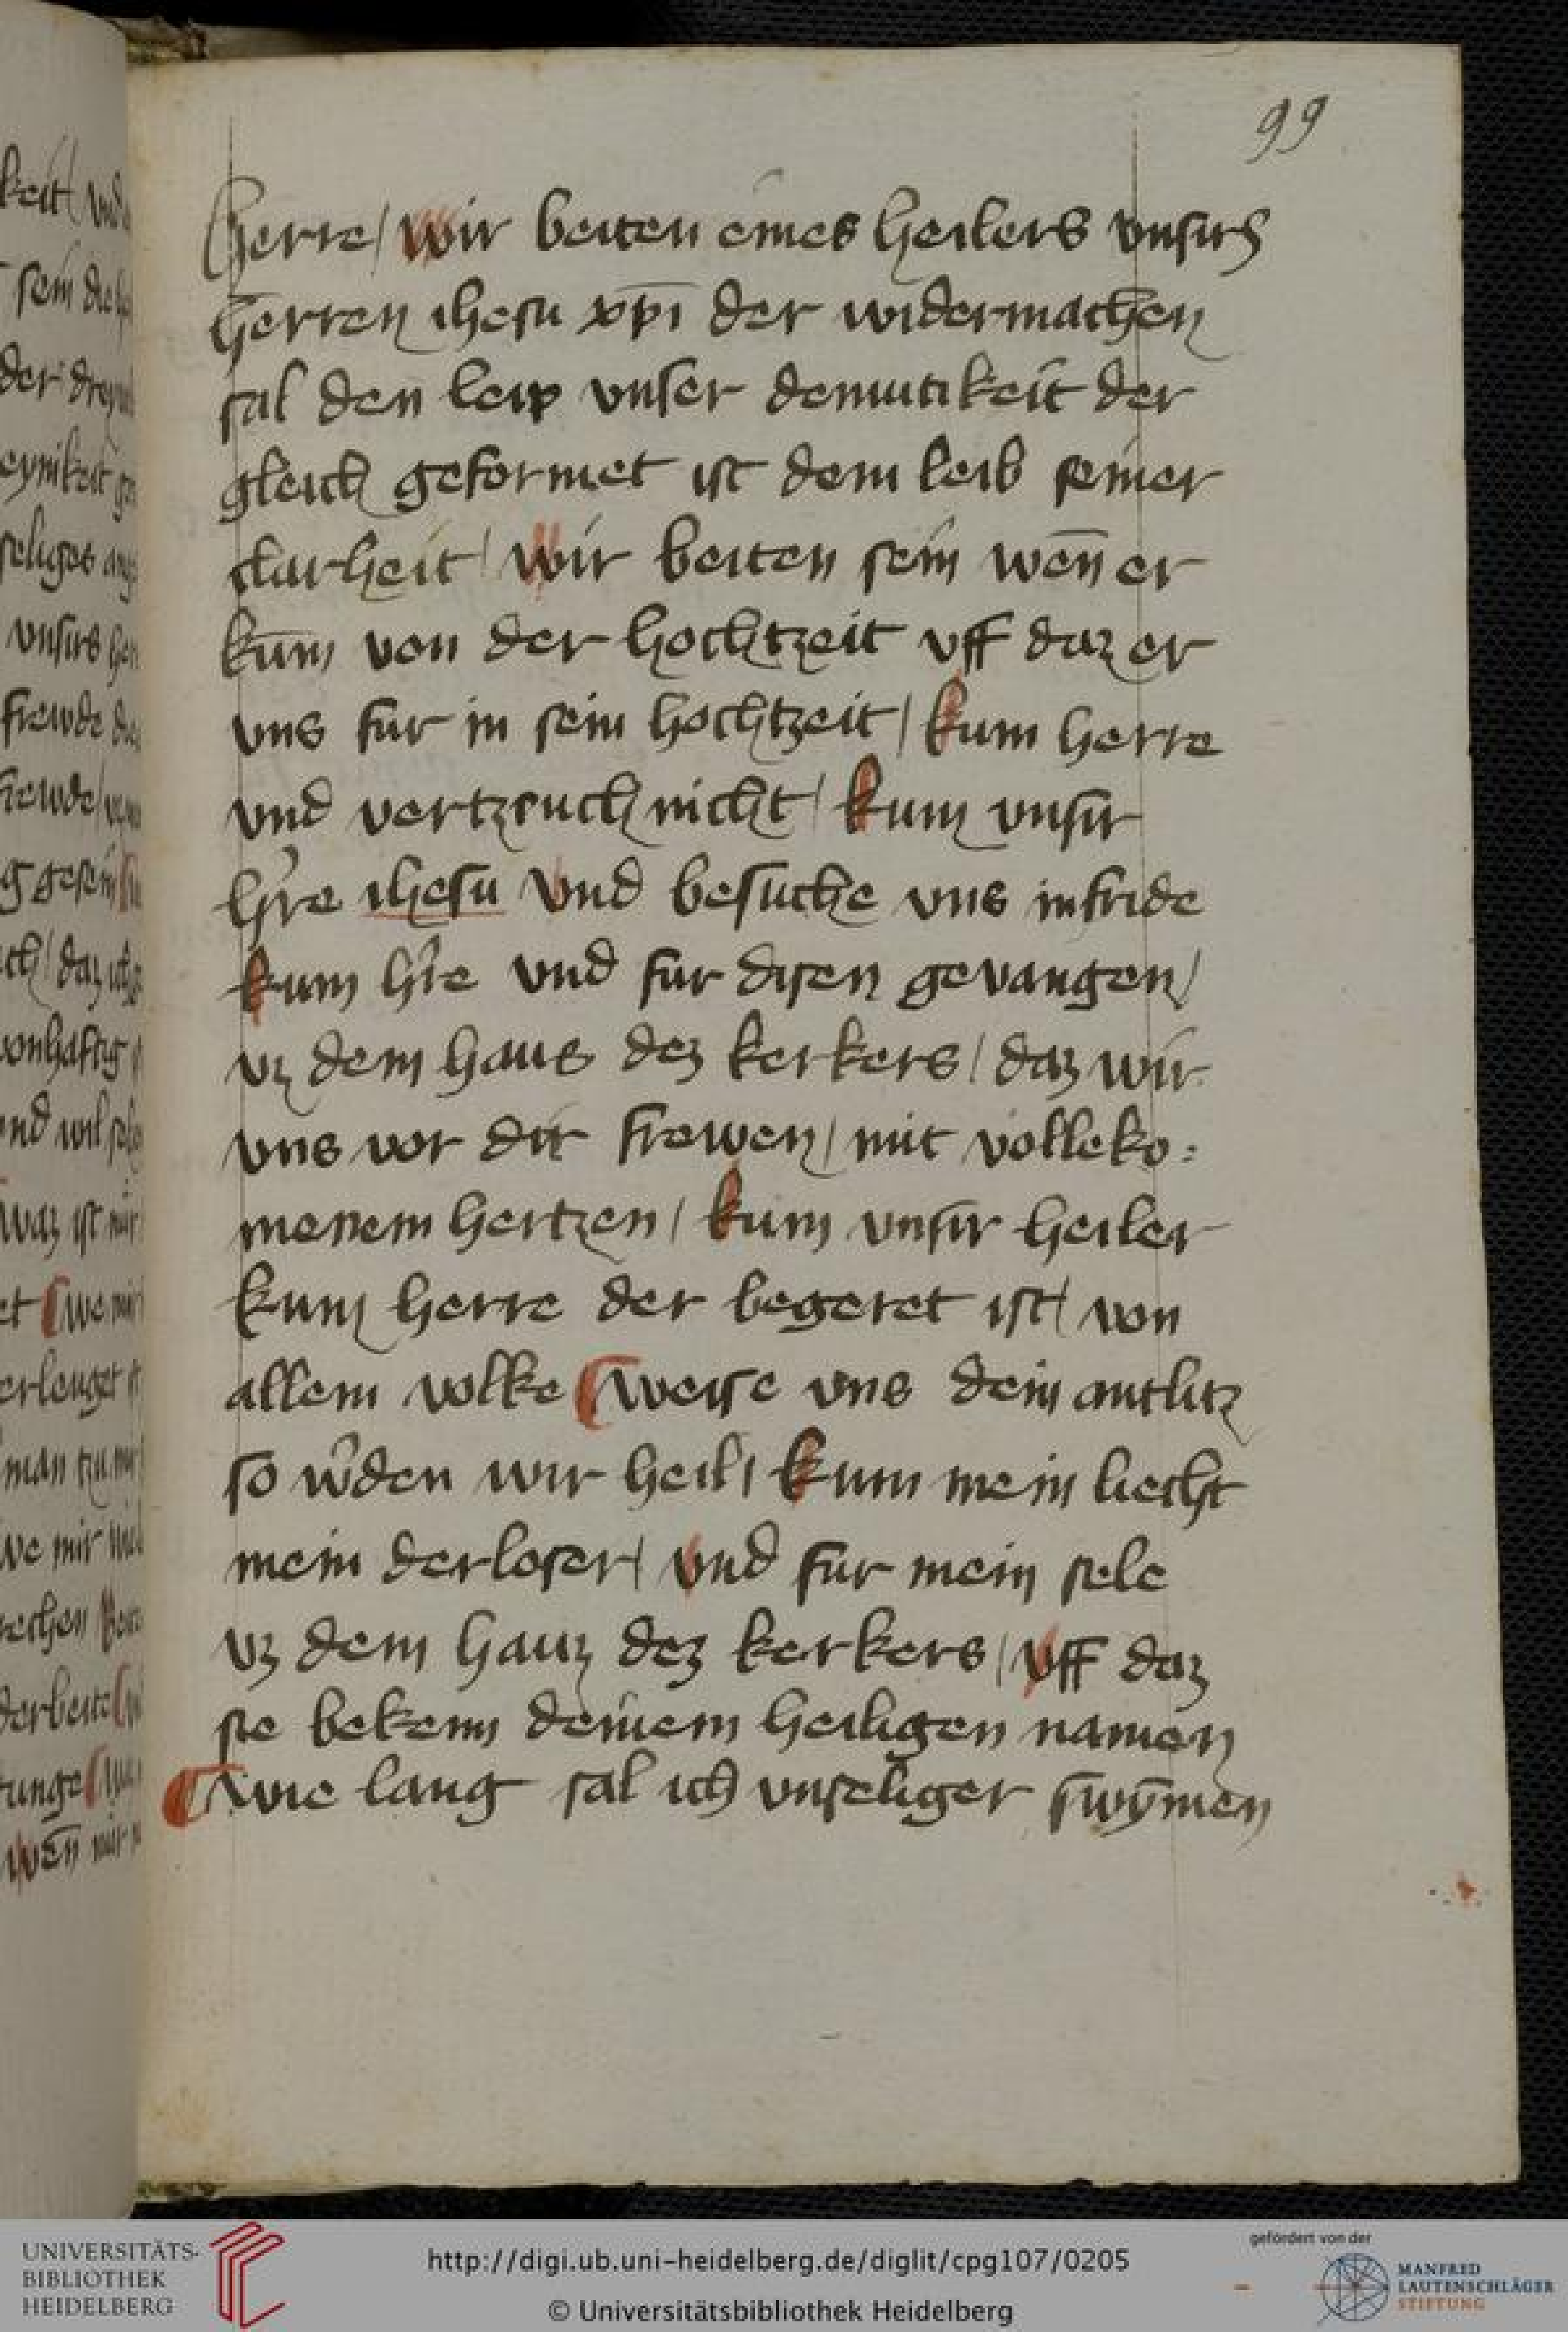 99
herre / wir beiten eines heilers vnsirs
herren ihesu xp̄i der widermachen
sal den leip vnser demutikeit der
gleich geformet ist dem leib seiner
clarheit / wir beiten sein wen̄ er
kūm von der hochtzeit vff daz er
vns fur in sein hochtzeit / kum herre
vnd vertzeuch nicht / kum vnsir
hʼre ihesu vnd besuche vns in fride
kum hʼre vnd fur disen gevangen /
vz dem haus dez kerkers / daz wir
vns vor dir frewen / mit volleko:
menem hertzen / kum vnsir heiler
kum herre der begeret ist / von
allem volke ¶ weise vns dein antlitz
so wʼden wir heil / kum mein liecht
mein derloser / vnd fur mein sele
vz dem hauz dez kerkers / vff daz
sie bekenn deinem heiligen namen
¶ wie lang sal ich vnseliger swȳmen
UNIVERSITÄTS-
BIBLIOTHEK
HEIDELBERG
http://digi.ub.uni-heidelberg.de/diglit/cpg107/0205
© Universitätsbibliothek Heidelberg
gefördert von der
MANFRED
LAUTENSCHLÄGER
STIFTUNG